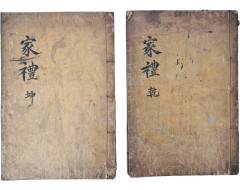 家禮
坤
家禮
乾